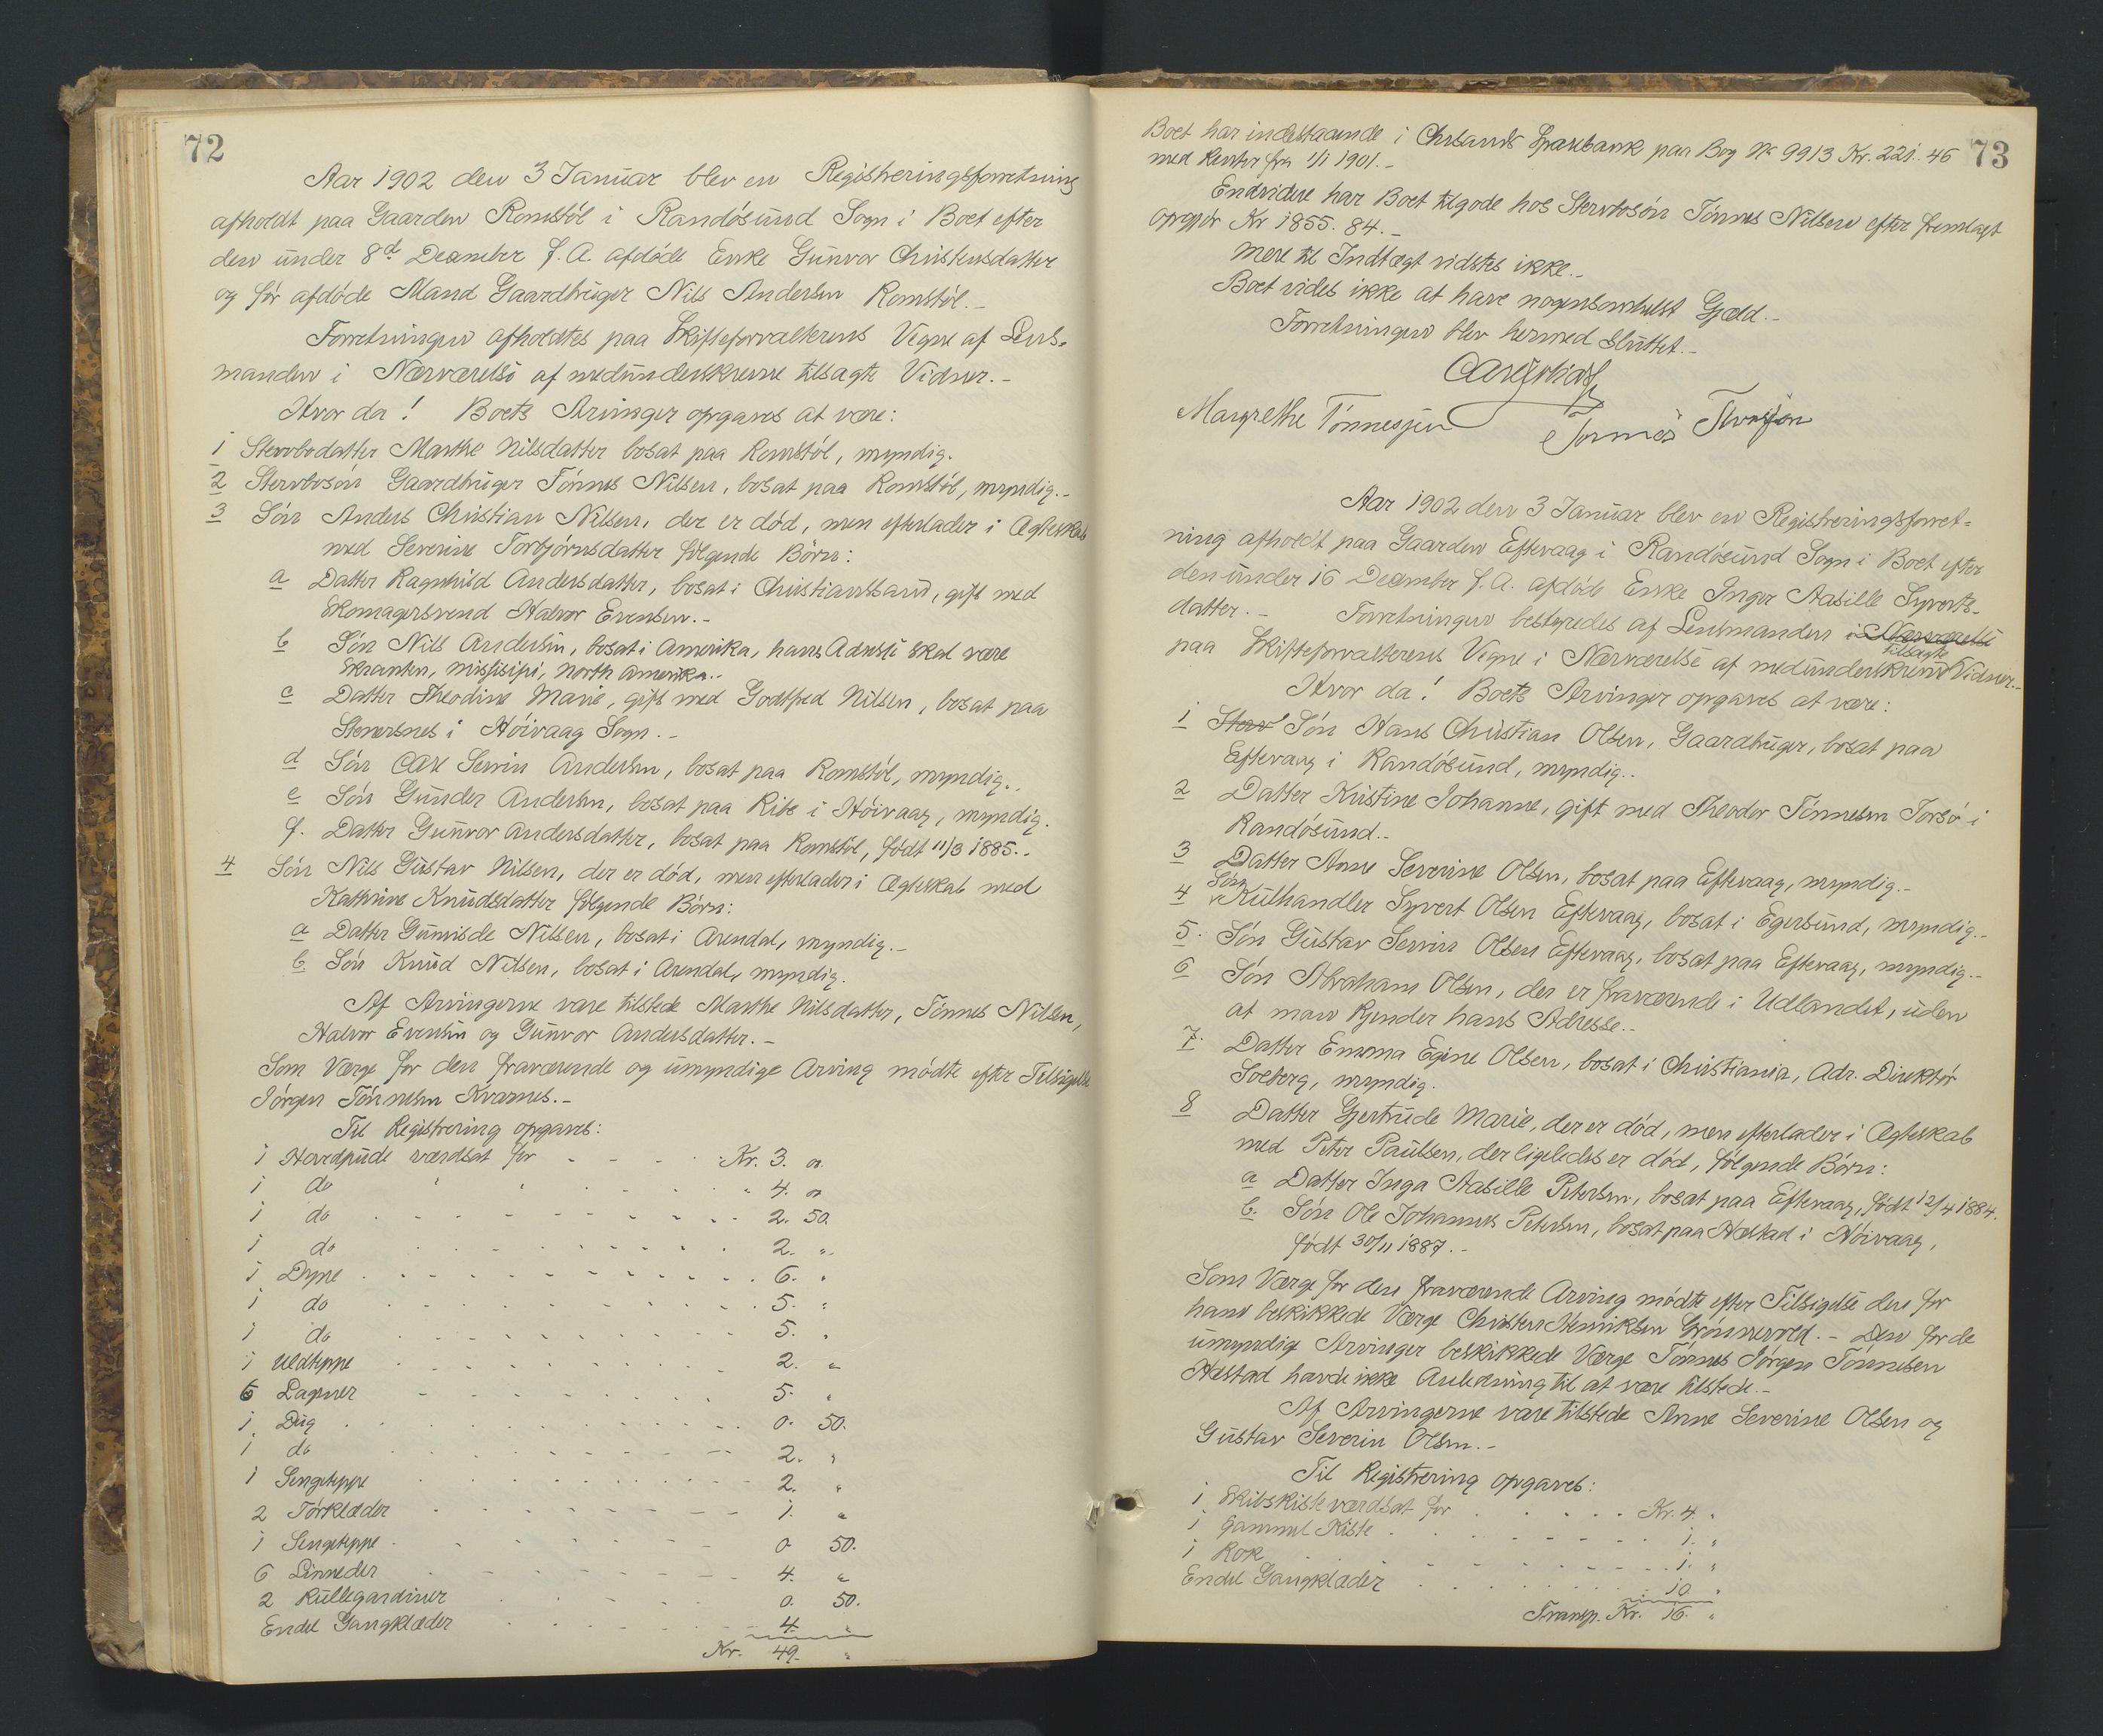 72
Aar 1902 den 3 Januar blev en Registreringsforretning
afholdt paa Gaarden Romstöl i Randösund Sogn i Boet efter
den under 8d December f. A. afdöde Enke Gunvor Christensdatter
og før afdöde Mand Gaardbruger Nils Andersen Romstöl.-
Forretningen afholdtes paa Skifteforvalterens Vegne af Lens-
manden i Nærværelse af medunderskrevne tilsagte Vidner.-
Hvor da! Boets Arvinger opgaves at være:
1 Stervbodatter Marthe Nilsdatter bosat paa Romstöl, myndig.
2 Stervbosön Gaardbruger Tönnes Nilsen, bosat paa Romstöl, myndig.-
3 Sön Anders Christian Nilsen, der er död, men efterlader i Ægteskab
med Severine Torbjörnsdatter følgende Börn:
a Datter Ragnhild Andersdatter, bosat i Christianssand, gift med
Skomagersvend Halvor Evensen.-
b Sön Nils Andersen, bosat i Amerika, hans Adresse skal være
Skranten, Missisipi, North Amerika..
c Datter Theodine Marie, gift med Godtfred Nilsen, bosat paa
Stenersnes i Höivaag Sogn.-
d Sön Carl Serin Andersen, bosat paa Romstöl, myndig..
e Sön Gunder Andersen, bosat paa Ribe i Höivaag, myndig.
f. Datter Gunvor Andersdatter, bosat paa Romstöl, født 11/3 1885.-
4 Sön Nils Gustav Nilsen, der er död, men efterlader i Ægteskab med
Kathrine Knudsdatter følgende Börn:
a Datter Gunvilde Nilsen, bosat i Arendal, myndig.-
b Sön Knud Nilsen, bosat i Arendal, myndig.
Af Arvingerne vare tilstede Marthe Nilsdatter, Tönnes Nilsen,
Halvor Evensen og Gunvor Andersdatter.-
Som Værge for den fraværende og umyndige Arving mödte efter Tilsigelse
Jörgen Tönnesen Kvarnes.-
Til Registrering opgaves:
1 Hovedpude værdsat for Kr. 3. "
1 do 4. "
1 do 2. 50.
1 do 2. "
1 Dyne 6. "
1 do 5. "
1 do 5. "
1 Uldteppe 2. "
6 Lagner 5. "
1 Dug 0. 50.
1 do 2. "
1 Sengeteppe 2. "
2 Törklæder 1. "
1 Sengeteppe 0. 50.
6 Linneder 4. "
2 Rullegardiner 0. 50.
Endel Gangklæder 4. "
Kr. 49. "
73
Boet har indestaaende i Chrsands Sparebank paa Bog No 9913 Kr. 221. 46
med Renter fra 1/1 1901.-
Endvidere har Boet tilgode hos Stervbosön Tönnes Nilsen efter fremlagt
opgjör Kr 1855. 84.-
Mere til Indtægt vidstes ikke.-
Boet vides ikke at have nogensomhelst Gjæld.-
Forretningen blev hermed sluttet.-
Margrethe Tönnesen
Aar 1902 den 3 Januar blev en Registreringsforret-
ning afholdt paa Gaarden Eftevaag i Randösund Sogn i Boet efter
den under 16 December f. A. afdöde Enke Inger Aasille Syverts-
datter.- Forretningen bestyredes af Lensmanden i Nærværelse
paa Skifteforvalterens Vegne i Nærværelse af medunderskrevne tilsagte Vidner.-
Hvor da! Boets Arvinger opgaves at være:
1 Sterv Sön Hans Christian Olsen, Gaardbruger, bosat paa
Eftevaag i Randösund, myndig..
2 Datter Kristine Johanne, gift med Theodor Tönnesen Torsö i
Randösund.-
3 Datter Anne Severine Olsen, bosat paa Eftevaag, myndig.-
4 Sön Kulhandler Syvert Olsen Eftevaag, bosat i Egersund, myndig.-
5. Sön Gustav Serin Olsen Eftevaag, bosat paa Eftevaag, myndig.-
6 Sön Abraham Olsen, der er fraværende i Udlandet, uden
at man kjender hans Adresse.-
7. Datter Emma Egine Olsen, bosat i Christiania, Adr. Direktör
Solberg, myndig.
8 Datter Gjertrude Marie, der er död, men efterlader i Ægteskab
med Peter Paulsen, der ligeledes er död, følgende Börn:
a Datter Inga Aasille Petersen, bosat paa Eftevaag, født 12/4 1884.
b. Sön Ole Johannes Petersen, bosat paa Hæstad i Höivaag,
født 30/11 1887.-
Som Værge for den fraværende Arving mödte efter Tilsigelse den for
ham beskikkede Værge Christen Henriksen Grönnevold.- Den for de
umyndige Arvinger beskikkede Værge Tönnes Jörgen Tönnesen
Hæstad havde ikke Anledning til at være tilstede.-
Af Arvingerne vare tilstede Anne Severine Olsen og
Gustav Severin Olsen.-
Til Registrering opgaves:
1 Skibskiste værdsat for Kr. 4. "
1 gammel Kiste 1. "
1 Rok 1. "
Endel Gangklæder 10 "
Transp. Kr. 16. "